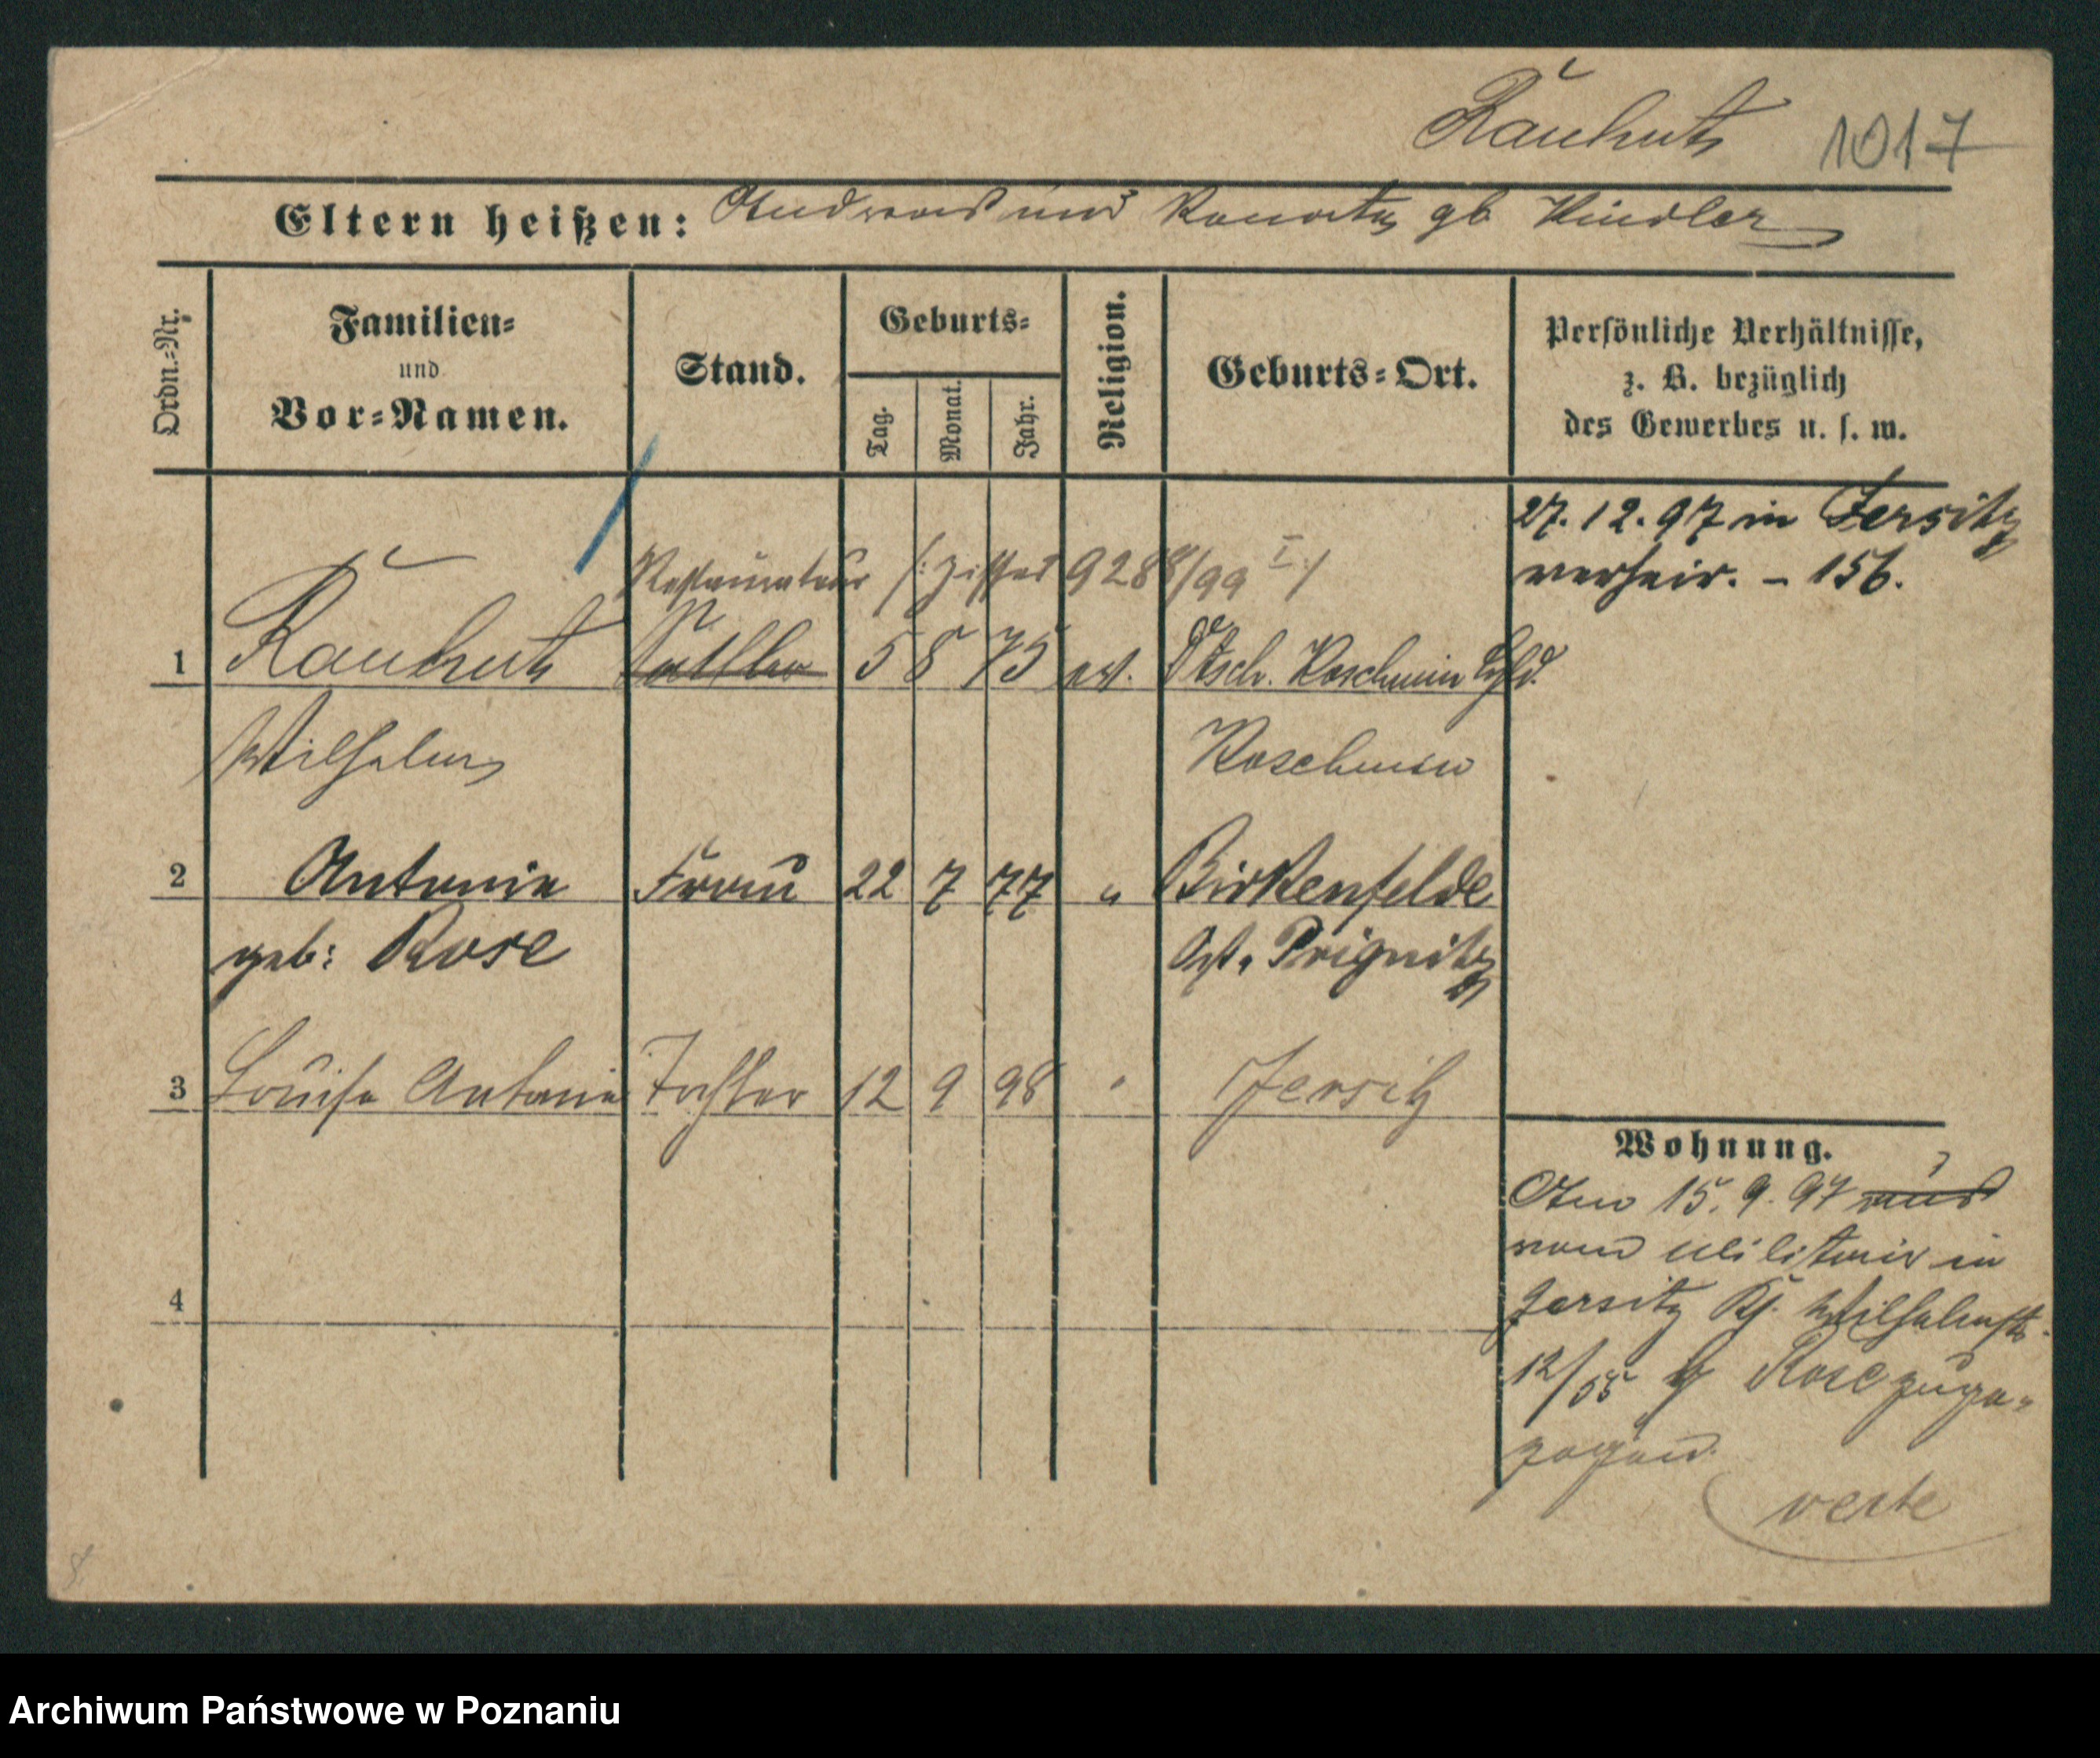 Rauhut 1017
Eltern heißen: Andreas und Renate gb Kindler
Ordn.=Nr.
Familien=
und
Vor=Namen.
Stand.
Geburts=
Tag.
Monat.
Jahr.
Religion.
Geburts=Ort.
Persönliche Verhältnisse,
z. B. bezüglich
des Gewerbes u. s. w.
27.12.97 in Jersitz
verheir. – 156.
Restaurateur /: Ziffer 9288/99 I :/
1 Rauhut Sattler 5 8 75 ev. Dtsch. Koschmin Hld.
Wilhelm Koschmin
2 Antonie Frau 22 7 77 " Birkenfelde
geb: Rose Ost. Prignitz
3 Louise Antonie Tochter 12 9 98 " Jersitz
4
Wohnung.
Am 15.9.97 aus
vom Militair in
Jersitz Kj. Wilhelmstr.
12/55 b/ Rose zuge=
zogen.
verte
Archiwum Państwowe w Poznaniu